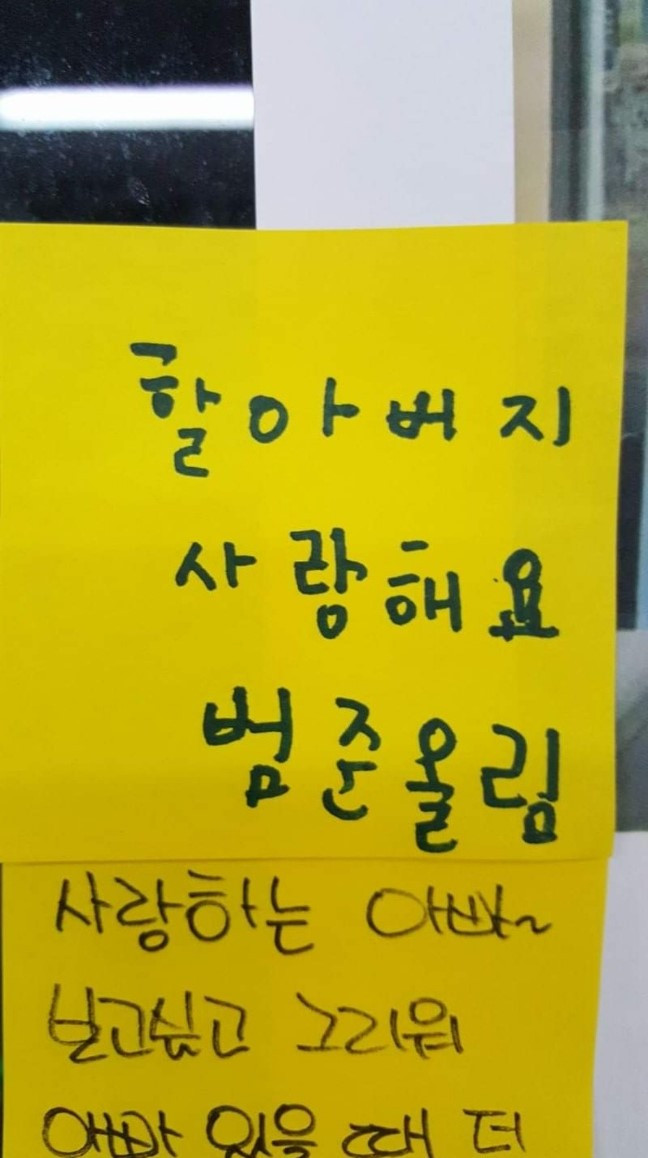 할아버지
사랑해요
범준올림
사랑하는 아빠~
보고싶고 그리워
아빠 있을 때 더